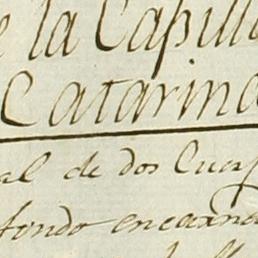 e la Capilla
Catarina
al de dos Cuer
fondo encarna